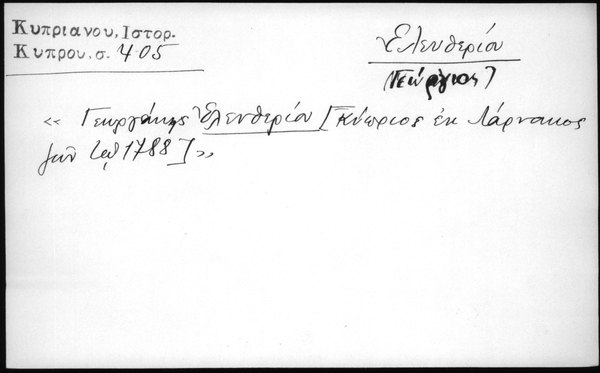 Κυπριανου, Ιστορ.
Κυπρου, σ. 405
Ἐλευθερίου
(Γεώργιος)
« Γεωργάκης Ἐλευθερίου [Κύπριος ἐκ Λάρνακος
1788] »